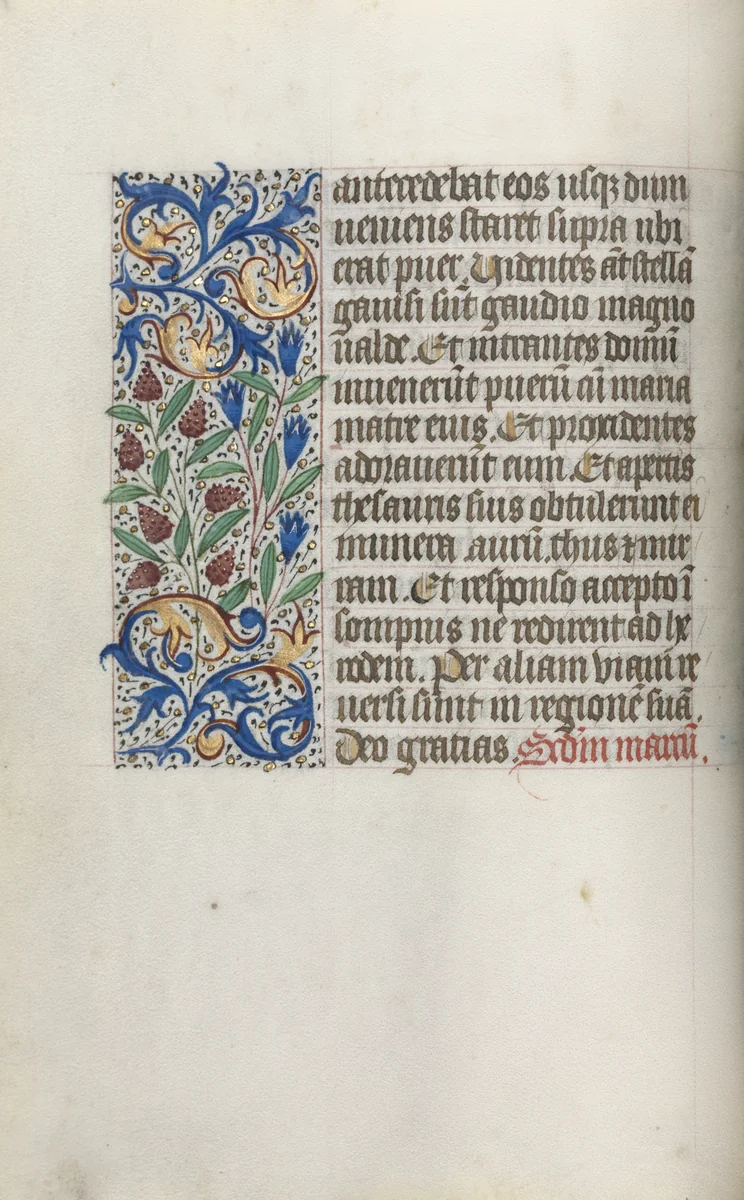 antecedebat eos usqꝫ dum
ueniens staret supra ubi
erat puer. Uidentes aūt stellā
gauisi sūt gaudio magno
ualde. Et intrantes domū
inuenerūt puerū cū maria
matre eius. Et procidentes
adorauerūt eum. Et apertis
thesauris suis obtulerunt ei
munera .aurū.thus ⁊ mir
ram. Et responso accepto ī
sompnis ne redirent ad he
rodem. Per aliam viam re
uersi sunt in regionē suā.
Deo gratias. Scdm marcū.